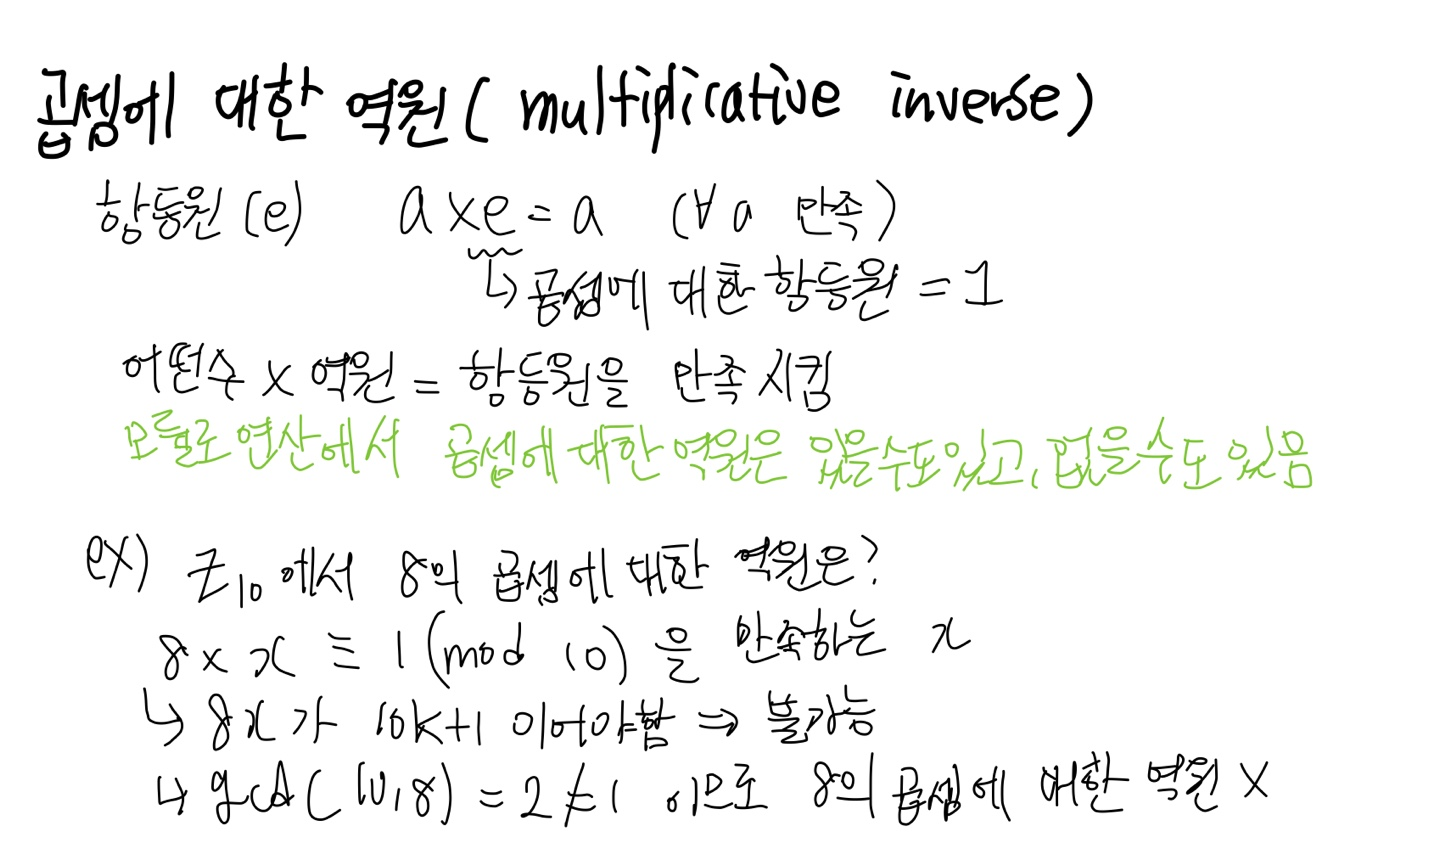 곱셈에 대한 역원( multiplicative inverse)
항등원 (e) a×e = a (∀a 만족)
↳ 곱셈에 대한 항등원 = 1
어떤수 × 역원 = 항등원을 만족시킴
모듈로 연산에서 곱셈에 대한 역원은 있을수도있고, 없을수도 있음
ex) Z₁₀에서 8의 곱셈에 대한 역원은?
8 × x ≡ 1 (mod 10) 을 만족하는 x
↳ 8x가 10k+1 이어야함 ⇒ 불가능
↳ gcd(10,8) = 2 ≠ 1 이므로 8의 곱셈에 대한 역원 X